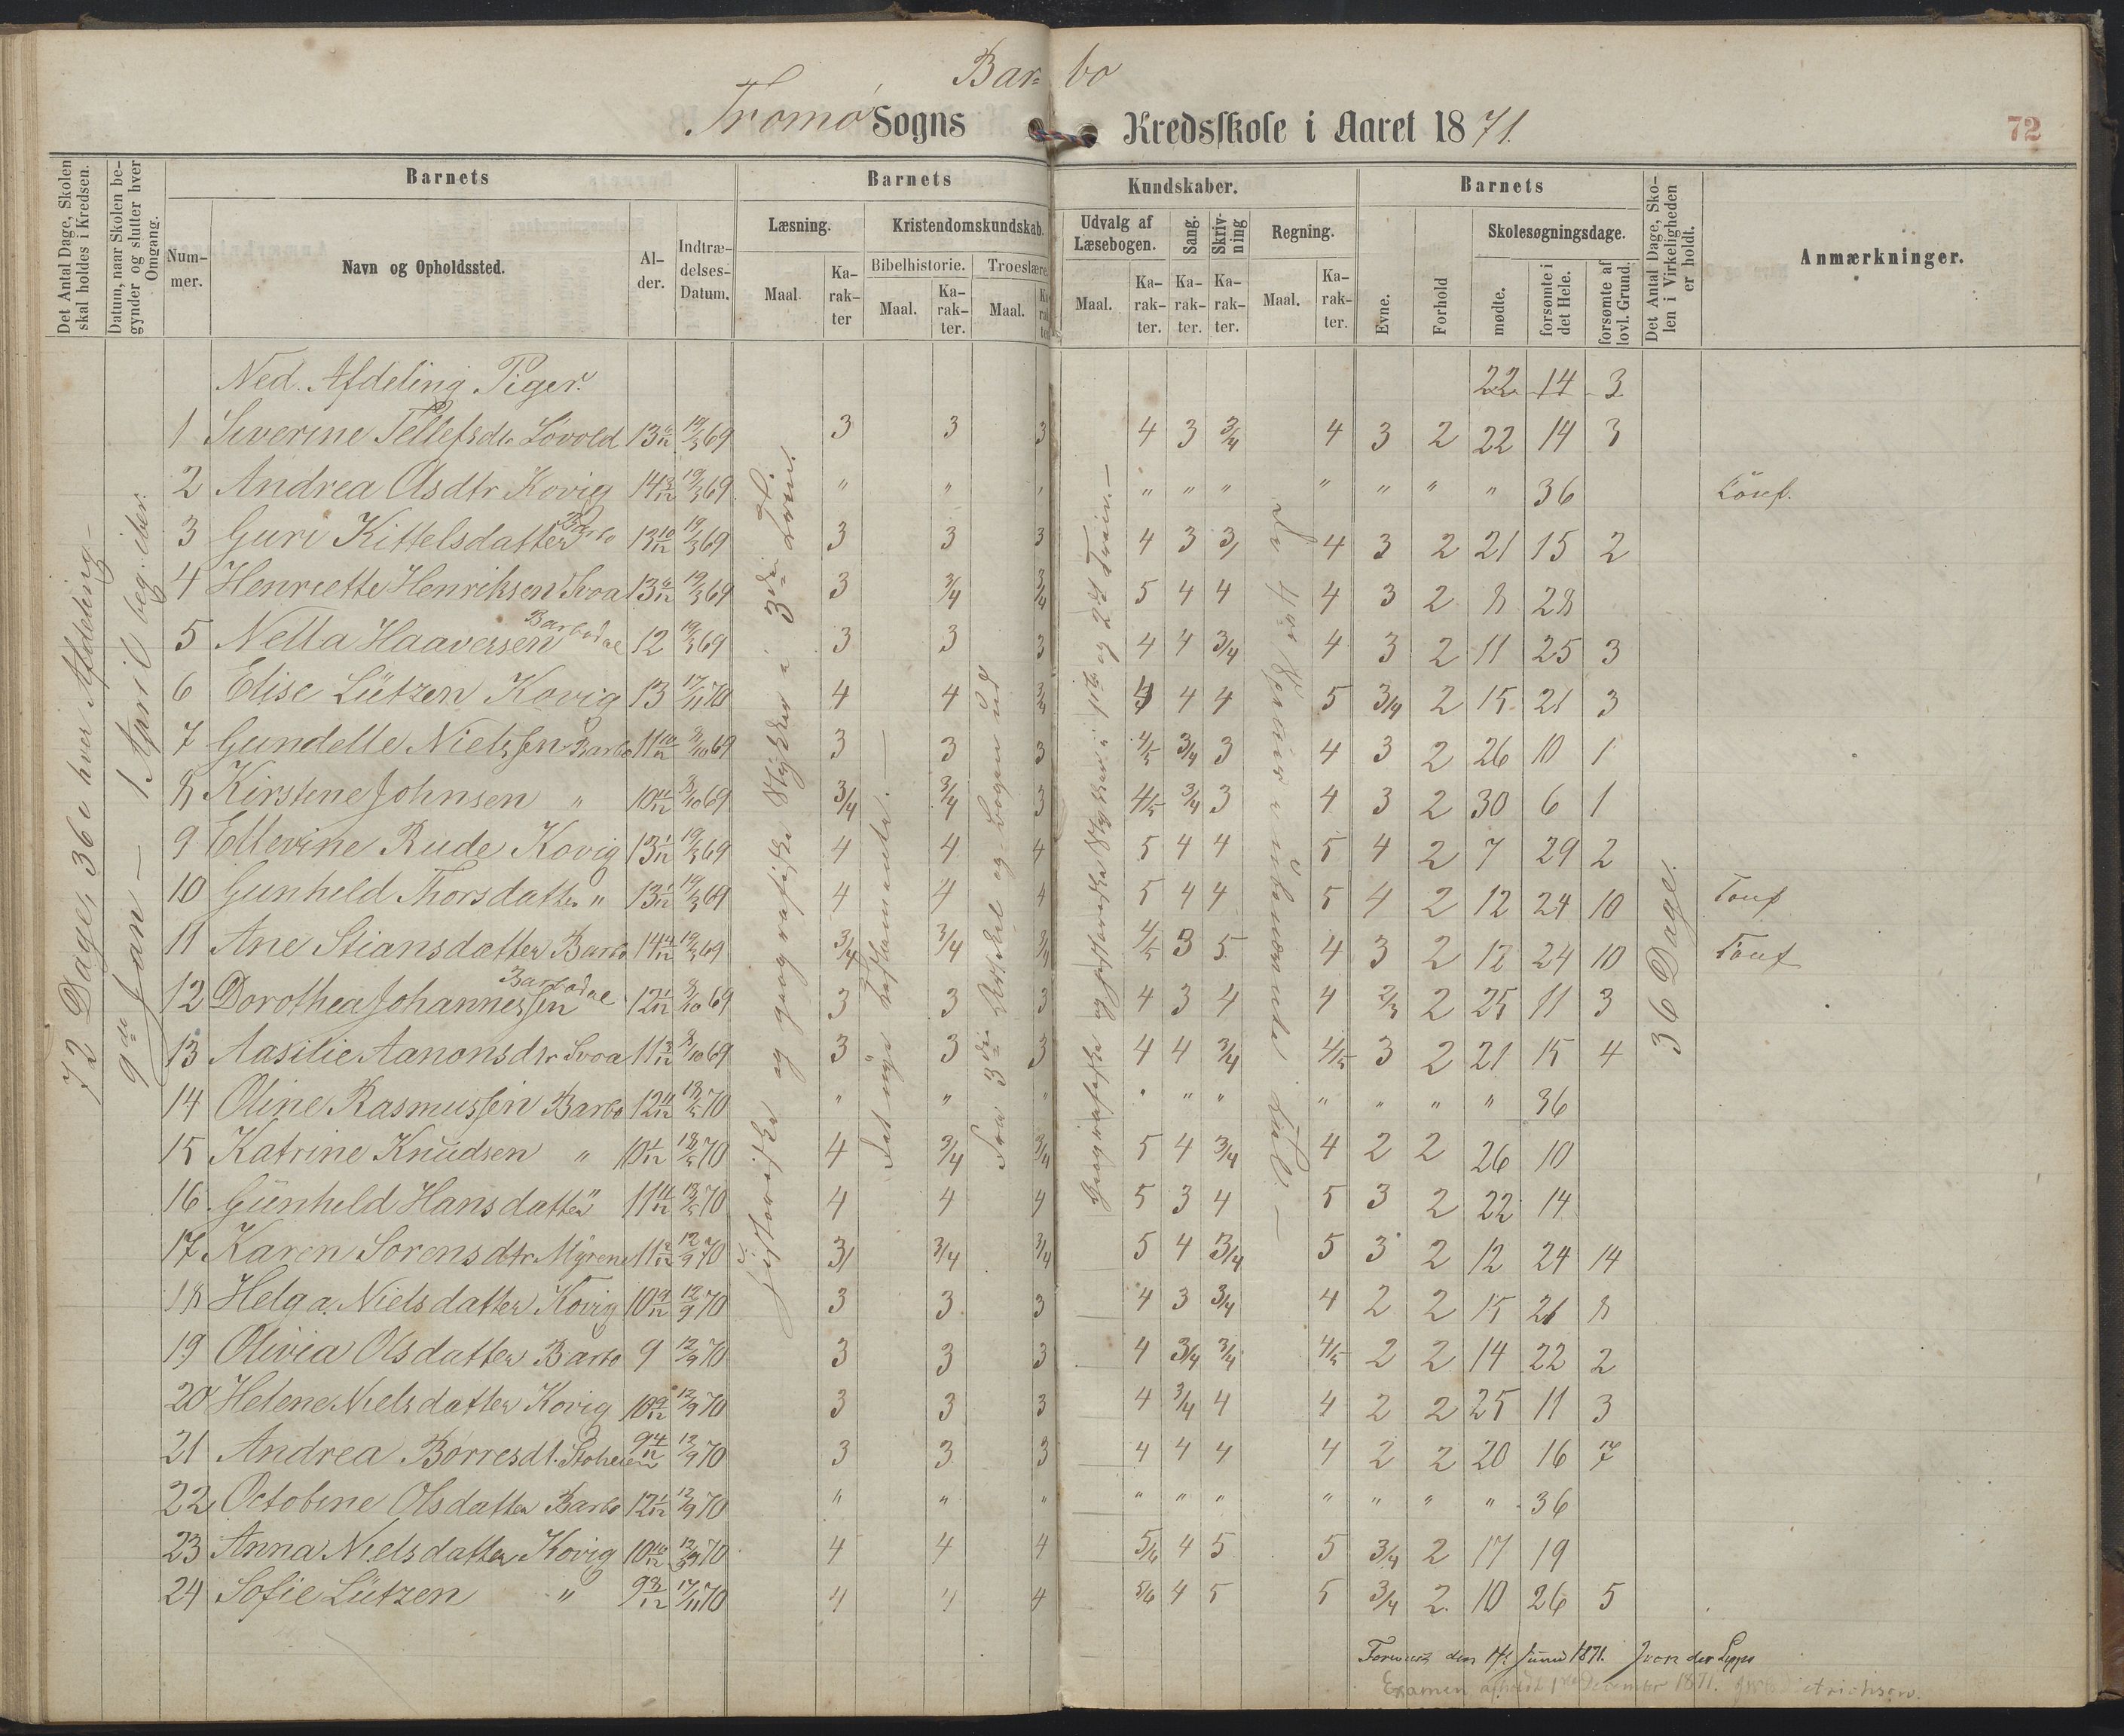 Bar= bo
Tromø Sogns Kredsskole i Aaret 1871.
72
Det Antal Dage, Skolen skal holdes i Kredsen.
Datum, naar Skolen begynder og slutter hver Omgang.
Barnets
Nummer.
Navn og Opholdssted.
Alder.
Indtrædelses-Datum.
Barnets Kundskaber.
Læsning.
Maal.
Karakter
Kristendomskundskab.
Bibelhistorie.
Maal.
Karakter.
Troeslære.
Maal.
Karakter
Udvalg af Læsebogen.
Maal.
Karakter.
Sang.
Karakter.
Skrivning
Karakter.
Regning.
Maal.
Karakter.
Barnets
Evne.
Forhold
Skolesøgningsdage.
mødte.
forsømte i det Hele.
forsømte af lovl. Grund.
Det Antal Dage, Skolen i Virkeligheden er holdt.
Anmærkninger.
72 Dage, 36 i hver Afdeling –
9de Jan – 1 April beg.
historiske og geografiske Stykker i 3die
Det nye Testamente. –
Fra 3die Artikel og Bogen ud
Geografiske og historiske Stykker i 1ste og 2det Trin. –
De 4re Specier i ubenævnte Tal. –
36 Dage.
Ned. Afdeling Piger. 22 14 3
1 Siverine Tellefsdr. Løvold 13 6/12 19/3 69 3 3 3 4 3 3/4 4 3 2 22 14 3
2 Andrea Olsdtr Kovig 14 3/12 19/3 69 " " " " " " " " " 36 Conf.
3 Guri Kittelsdatter Barbo 13 10/12 19/3 69 3 3 3 4 3 3/ 4 3 2 21 15 2
4 Henriette Henriksen Svoa 13 6/12 19/3 69 3 3/4 3/4 5 4 4 4 3 2 8 28
5 Nella Haaversen Barbodal 12 19/3 69 3 3 3 4 4 3/4 4 3 2 11 25 3
6 Elise Lützen Kovig 13 17/11 70 4 4 3/4 4 4 5 3/4 2 15 21 3
7 Gundelle Nielssen Barbo 11 10/12 3/10 69 3 3 3 4/5 3/4 3 4 3 2 26 10 1
8 Kirstine Johnsen " 10 3/10 69 3/4 3/4 3 4/5 3/4 3 4 3 2 30 6 1
9 Ellevine Rude Kovig 13 1/12 19/3 69 4 4 4 5 4 4 5 4 2 7 29 2
10 Gunhild Thorsdatter " 13 1/12 19/3 69 4 4 4 5 4 4 5 4 2 12 24 10 Conf
11 Ane Stiansdatter Barbo 14 4/12 19/3 69 3/4 3/4 3/4 4/5 3 5 4 3 2 12 24 10 Conf
12 Dorothea Johannessen Barbodal 12 1/12 3/10 69 3 3 3 4 3 4 4 2/3 2 25 11 3
13 Aasilie Aanonsdtr Svoa 11 3/12 3/10 69 3 3 3 4 4 3/4 4/5 3 2 21 15 4
14 Oline Rasmussen Barbo 12 11/12 18/5 70 " " " " " " " " " " 36
15 Katrine Knudsen " 10 1/12 18/5 70 4 3/4 3/4 5 4 3/4 4 2 2 26 10
16 Gunhild Hansdatter " 11 11/12 18/5 70 4 4 4 5 3 4 5 3 2 22 14
17 Karen Sorensdtr Myrene 11 12/9 70 3/ 3/4 3/4 5 4 3/4 5 3 2 12 24 14
18 Helga Nielsdatter Kovig 10 9/12 12/9 70 3 3 3 4 3 3/4 4 2 2 15 21 8
19 Olivia Olsdatter Barbo 9 12/9 70 3 3 3 4 3/4 3/4 4/5 2 2 14 22 2
20 Helene Nielsdatter Kovig 10 9/12 12/9 70 3 3 3 4 3/4 4 4 2 2 25 11 3
21 Andrea Borresdt. 9 4/12 12/9 70 3 3 3 4 4 4 4 2 2 20 16 7
22 Octobine Olsdatter Barbo 12 1/12 12/9 70 " " " " " " " " " " 36
23 Anna Nielsdatter Kovig 10 10/12 12/9 70 4 4 4 5/6 4 5 5 3/4 2 17 19
24 Sofie Lützen " 9 8/12 17/11 70 4 4 4 5/6 4 5 5 3/4 2 10 26 5
Forevist den Juni 1871. J von der Lippe
Examen afholdt 1ste December 1871.